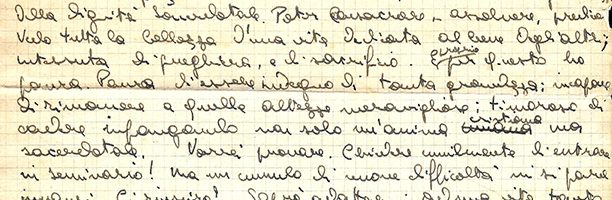 della dignità sacerdotale. Poter consacrare – assolvere, predicare
Vedo tutta la bellezza d'una vita dedicata al bene degli altri;
intessuta di preghiera, e di sacrificio. E proprio per questo ho
paura. Paura d'essere indegno di tanta grandezza; incapace
di rimanere a quelle altezze meravigliose; timoroso di
cadere infangando non solo un'anima cristiana ma
sacerdotale. Vorrei provare. Chiedere umilmente di entrare
in seminario! Ma un cumulo di nuove difficoltà mi si para
innanzi. Ci riuscirò! Saprò adattarmi ad una vita tanto